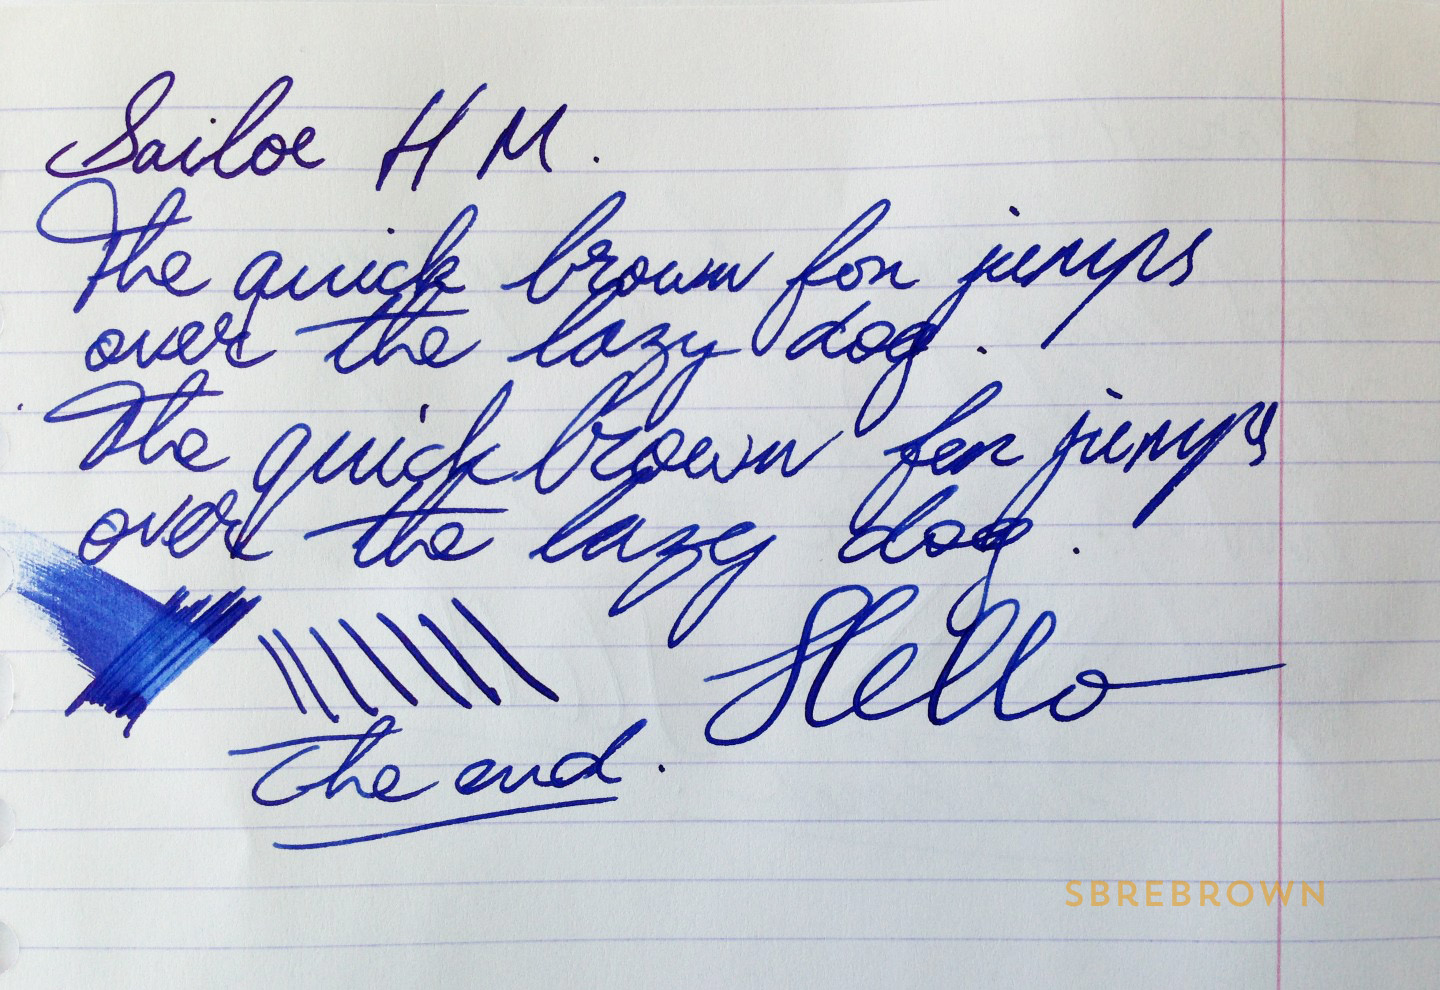 Sailor H M.
The quick brown fox jumps
over the lazy dog.
The quick brown fox jumps
over the lazy dog.
Hello
The end.
SBREBROWN